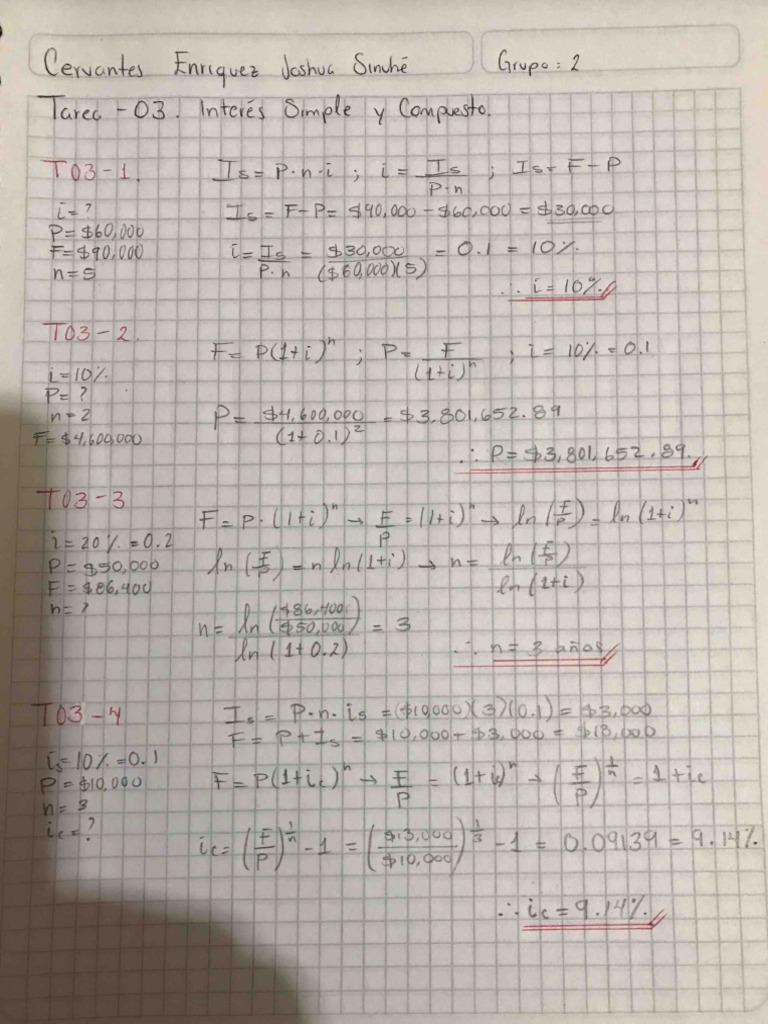 Cervantes Enriquez Joshua Sinuhé Grupo: 2
Tarea - 03. Interés Simple y Compuesto.
T03-1. Is = P·n·i ; i = Is/P·n ; Is = F-P
i = ?
P = $60,000
F = $90,000
n = 5
Is = F-P = $90,000 - $60,000 = $30,000
i = Is/P·n = $30,000/($60,000)(5) = 0.1 = 10%.
∴ i = 10%.
T03-2
i = 10%
P = ?
n = 2
F = $4,600,000
F = P(1+i)^n ; P = F/(1+i)^n ; i = 10% = 0.1
P = $4,600,000/(1+0.1)^2 = $3,801,652.89
∴ P = $3,801,652.89.
T03-3
i = 20% = 0.2
P = $50,000
F = $86,400
n = ?
F = P·(1+i)^n → F/P = (1+i)^n → ln(F/P) = ln(1+i)^n
ln(F/P) = n ln(1+i) → n = ln(F/P)/ln(1+i)
n = ln($86,400/$50,000)/ln(1+0.2) = 3
∴ n = 3 años
T03-4
is = 10% = 0.1
P = $10,000
n = 3
ic = ?
Is = P·n·is = ($10000)(3)(0.1) = $3,000
F = P + Is = $10,000 + $3,000 = $13,000
F = P(1+ic)^n → F/P = (1+i)^n → (F/P)^1/n = 1+ic
ic = (F/P)^1/n - 1 = ($13,000/$10,000)^1/3 - 1 = 0.09139 = 9.14%
∴ ic = 9.14%